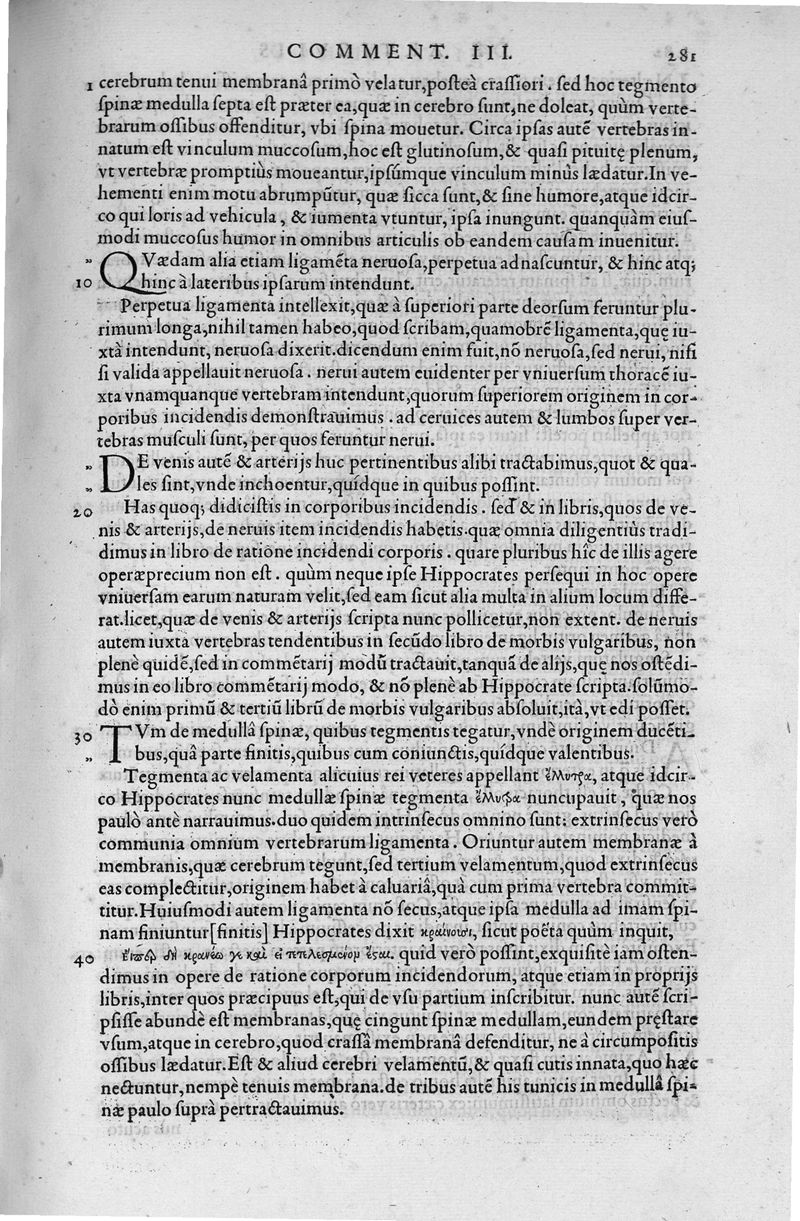 COMMENT. III. 281
1 cerebrum tenui membranâ primò velatur,posteà crassiori. sed hoc tegmento
spinæ medulla septa est præter ea,quæ in cerebro sunt,ne doleat, quùm verte-
brarum ossibus offenditur, vbi spina mouetur. Circa ipsas autē vertebras in-
natum est vinculum muccosum,hoc est glutinosum,& quasi pituitę plenum,
vt vertebræ promptiùs moueantur,ipsúmque vinculum minùs lædatur.In ve-
hementi enim motu abrumpūtur, quæ sicca sunt,& sine humore,atque idcir-
co qui loris ad vehicula, & iumenta vtuntur, ipsa inungunt. quanquàm eius-
modi muccosus humor in omnibus articulis ob eandem causam inuenitur.
„ QVædam alia etiam ligamēta neruosa,perpetua adnascuntur, & hinc atq;
10 hinc à lateribus ipsarum intendunt.
Perpetua ligamenta intellexit,quæ à superiori parte deorsum feruntur plu-
rimum longa,nihil tamen habeo,quod scribam,quamobrē ligamenta,quę iu-
xtà intendunt, neruosa dixerit.dicendum enim fuit,nō neruosa,sed nerui, nisi
si valida appellauit neruosa. nerui autem euidenter per vniuersum thoracē iu-
xta vnamquanque vertebram intendunt,quorum superiorem originem in cor-
poribus incidendis demonstrauimus. ad ceruices autem & lumbos super ver-
tebras musculi sunt, per quos feruntur nerui.
„ DE venis autē & arterijs huc pertinentibus alibi tractabimus,quot & qua-
„ les sint,vnde inchoentur,quídque in quibus possint.
20 Has quoq; didicistis in corporibus incidendis. sed & in libris,quos de ve-
nis & arterijs,de neruis item incidendis habetis.quæ omnia diligentiùs tradi-
dimus in libro de ratione incidendi corporis. quare pluribus hîc de illis agere
operæprecium non est. quùm neque ipse Hippocrates persequi in hoc opere
vniuersam earum naturam velit,sed eam sicut alia multa in alium locum diffe-
rat.licet,quæ de venis & arterijs scripta nunc pollicetur,non extent. de neruis
autem iuxta vertebras tendentibus in secūdo libro de morbis vulgaribus, non
plenè quidē,sed in commētarij modū tractauit,tanquā de alijs,quę nos ostēdi-
mus in eo libro commētarij modo, & nō plenè ab Hippocrate scripta.solūmo-
dò enim primū & tertiū librū de morbis vulgaribus absoluit,ità,vt edi posset.
30 TVm de medullâ spinæ, quibus tegmentis tegatur,vndè originem ducēti-
„ bus,quâ parte finitis,quibus cum coniunctis,quídque valentibus.
Tegmenta ac velamenta alicuius rei veteres appellant ἔλυτρα, atque idcir-
co Hippocrates nunc medullæ spinæ tegmenta ἔλυτρα nuncupauit, quæ nos
paulò antè narrauimus.duo quidem intrinsecus omnino sunt: extrinsecus verò
communia omnium vertebrarum ligamenta. Oriuntur autem membranæ à
membranis,quæ cerebrum tegunt,sed tertium velamentum,quod extrinsecus
eas complectitur,originem habet à caluariâ,quà cum prima vertebra commit-
titur.Huiusmodi autem ligamenta nō secus,atque ipsa medulla ad imam spi-
nam finiuntur[finitis] Hippocrates dixit κραίνουσι, sicut poëta quùm inquit,
40 quid verò possint,exquisitè iam osten-
dimus in opere de ratione corporum incidendorum, atque etiam in proprijs
libris,inter quos præcipuus est,qui de vsu partium inscribitur. nunc autē scri-
psisse abundè est membranas,quę cingunt spinæ medullam,eundem pręstare
vsum,atque in cerebro,quod crassâ membranâ defenditur, ne à circumpositis
ossibus lædatur.Est & aliud cerebri velamentū,& quasi cutis innata,quo hæc
nectuntur,nempè tenuis membrana.de tribus autē his tunicis in medullâ spi-
næ paulo suprà pertractauimus.